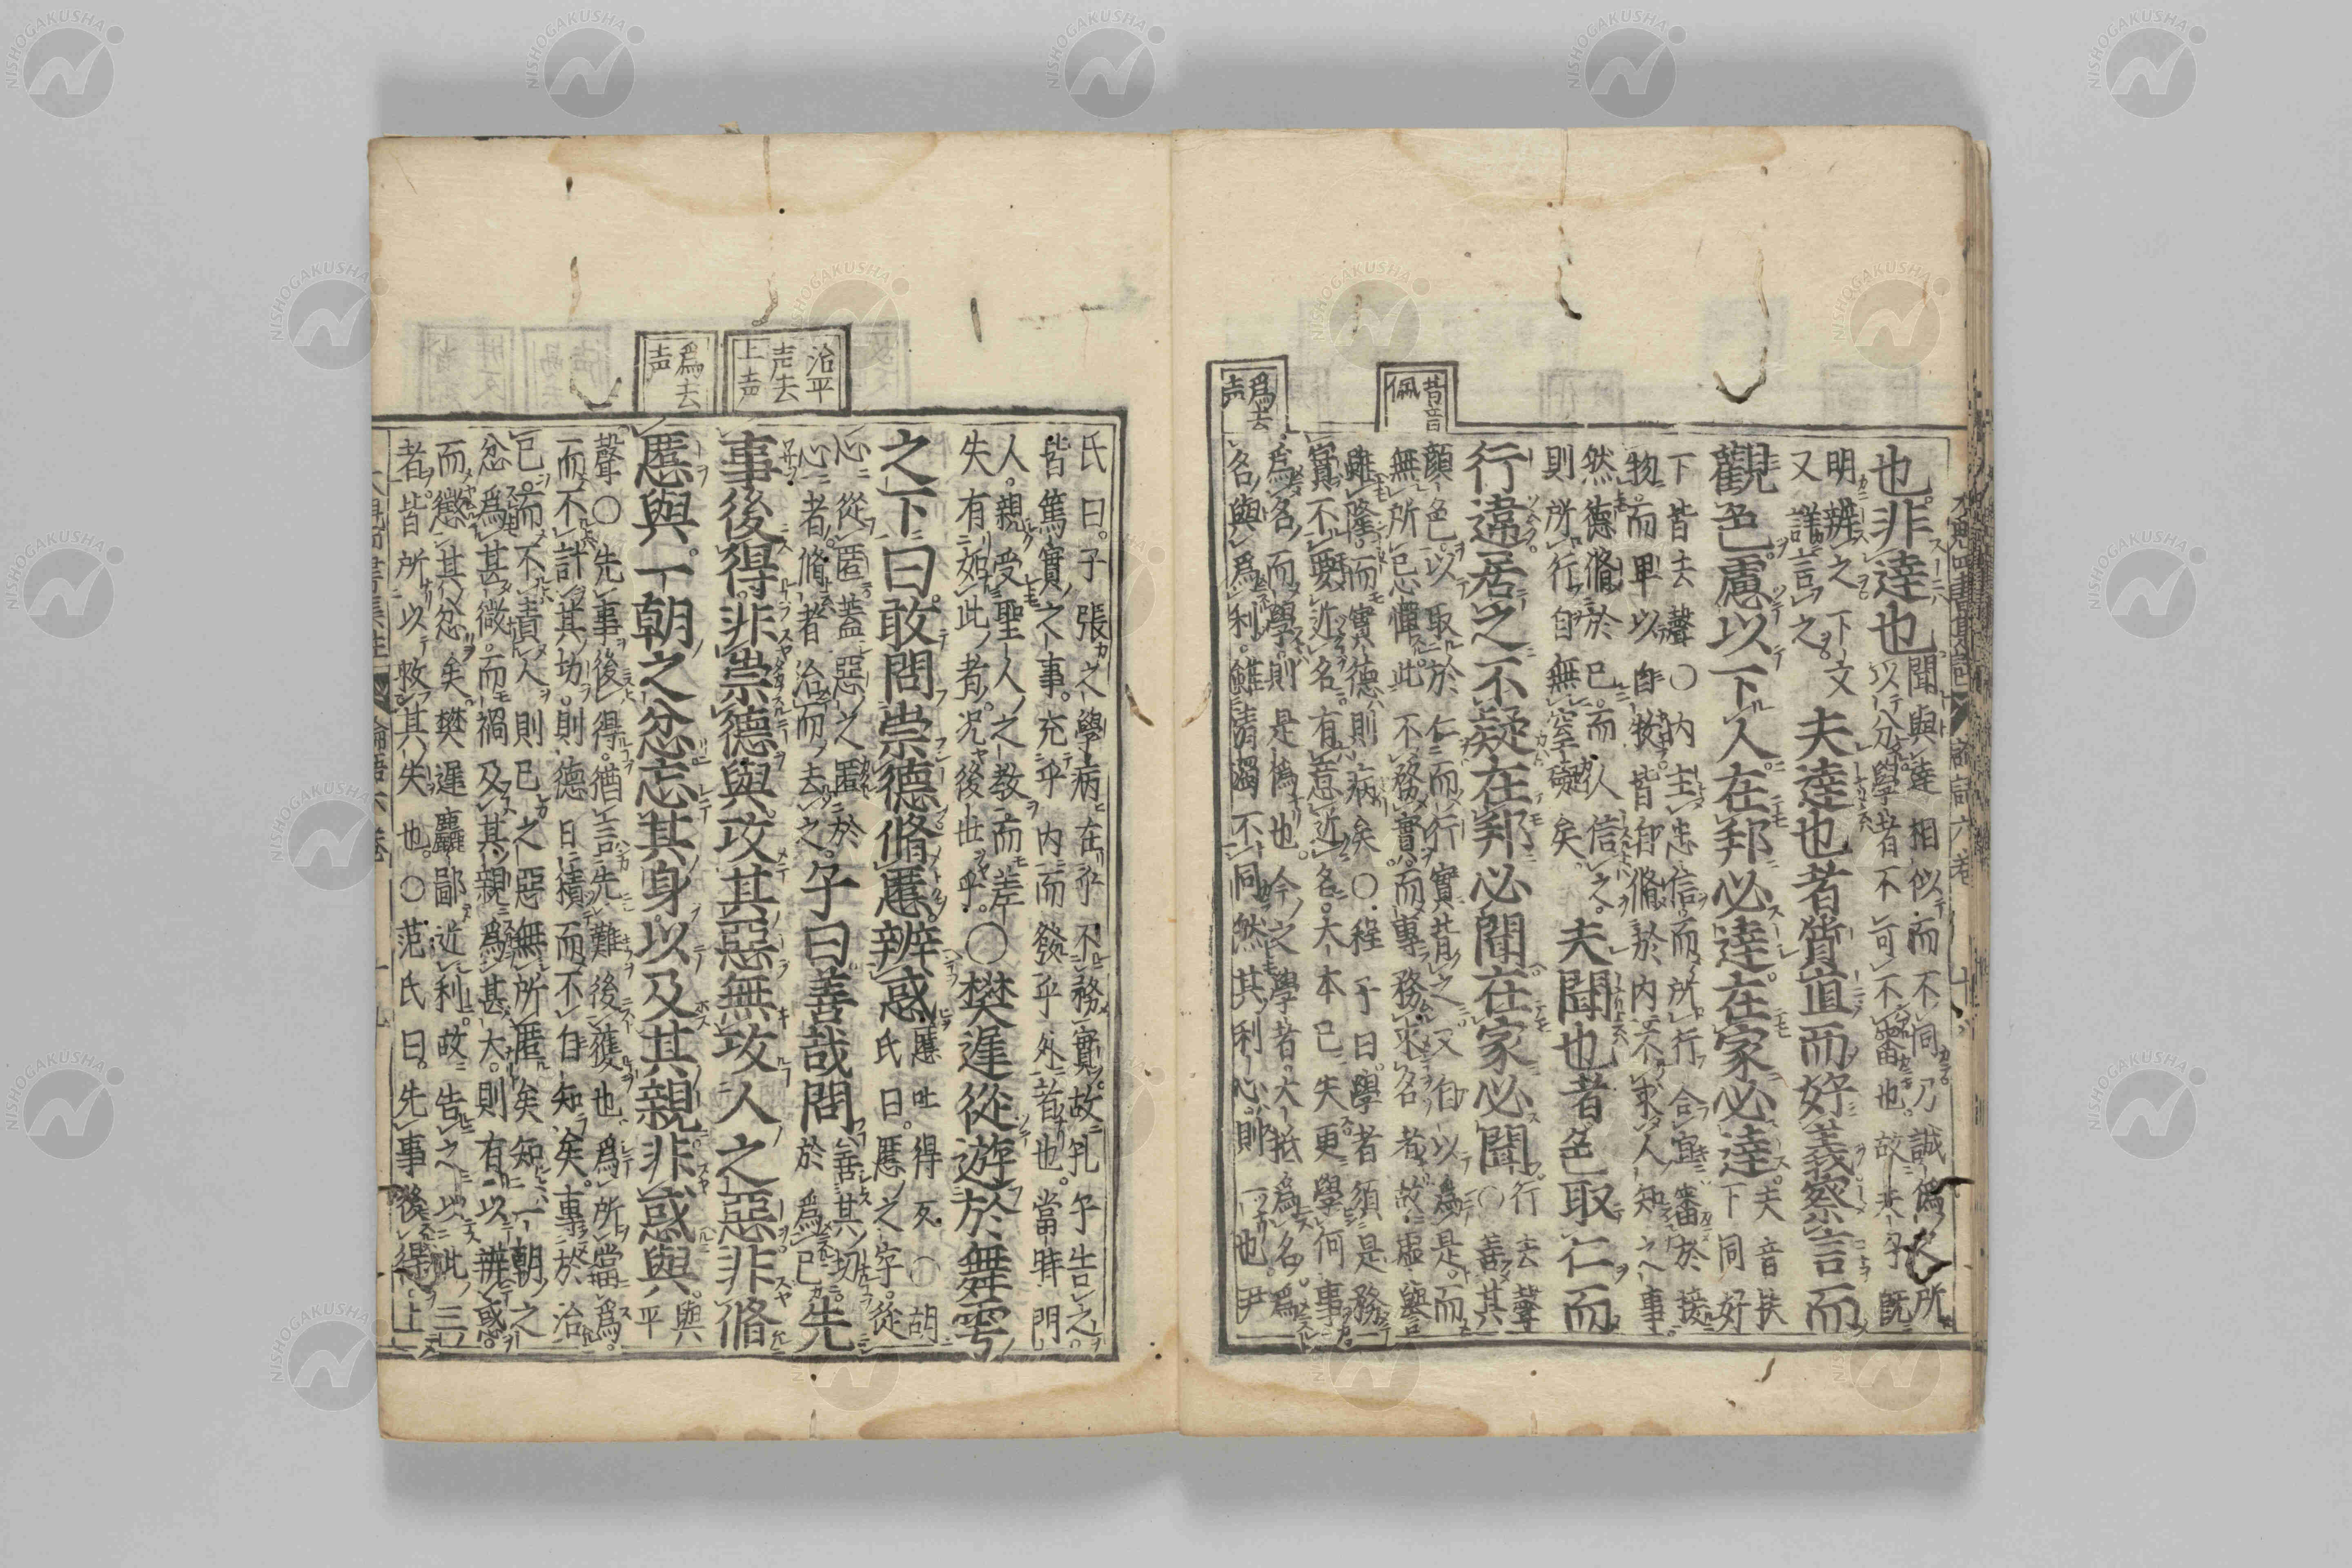 論語六卷
也非達也聞與達相似而不同乃誠偽之所
以分學者不可不審也故夫子既
明辨之下文
又詳言之夫達也者質直而好義察言而
觀色慮以下人在邦必達在家必達夫音扶
下同好
下皆去聲○內主忠信而所行合宜審於接
物而卑以自牧皆自脩於內不求人知之事
然德脩於己而人信之
則所行自無窒礙矣夫聞也者色取仁而
行違居之不疑在邦必聞在家必聞行去聲
○善其
背音
佩
顏色以取於仁而行實背之又自以為是而
無所忌憚此不務實而專務求名者故虛譽
雖隆而實德則病矣○程子曰學者須是務
實不要近名有意近名大本已失更學何事
為去
声
為名而學則是偽也今之學者大抵為名為
名與為利雖清濁不同然其利心則一也尹
氏曰子張之學病在乎不務實故孔子告之
皆篤實之事充乎內而發乎外者也當時門
人親受聖人之教而差
失有如此者况後世乎○樊遲從遊於舞雩
之下曰敢問崇德脩慝辨惑慝吐得反○胡
氏曰慝之字從
治平
声去
上声
心從匿蓋惡之匿於
心者脩者治而去之子曰善哉問善其切
於為己先
事後得非崇德與攻其惡無攻人之惡非脩
為去
声
慝與一朝之忿忘其身以及其親非惑與與
平
聲○先事後得猶言先難後獲也為所當為
而不計其功則德日積而不自知矣專於治
己而不責人則己之惡無所匿矣知一朝之
忿為甚微而禍及其親為甚大則有以辨惑
而懲其忿矣樊遲麤鄙近利故告之以此三
者皆所以救其失也○范氏曰先事後得上
NISHOGAKUSHA